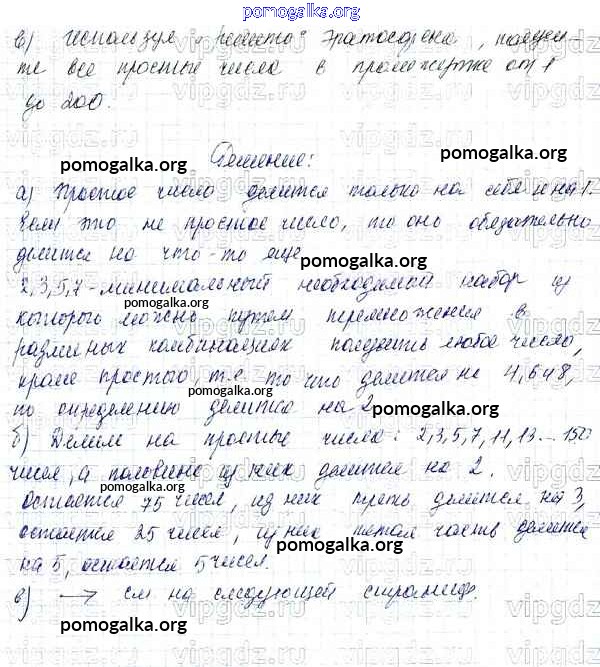 pomogalka.org
в) Используя "решето" Эратосфена, найди-
те все простые числа в промежутке от 1
до 200.
pomogalka.org pomogalka.org
Решение:
а) Простое число делится только на себя и на 1.
Если это не простое число, то оно обязательно
делится на что-то еще
pomogalka.org
2,3,5,7-минимальный необходимый набор из
pomogalka.org
которого можно путем перемножения в
различных комбинациях получить любое число,
pomogalka.org
кроме простого, т.е. то что делится на 4,6 и 8,
pomogalka.org
по определению делится на 2
pomogalka.org
б) Делим на простые числа: 2,3,5,7,11,13...150
чисел, а половина из них делится на 2.
pomogalka.org
остается 75 чисел, из них треть делится на 3,
остается 25 чисел, из них пятая часть делится
pomogalka.org
на 5, остается 5 чисел.
в) → см на следующей странице.
pomogalka.org pomogalka.org